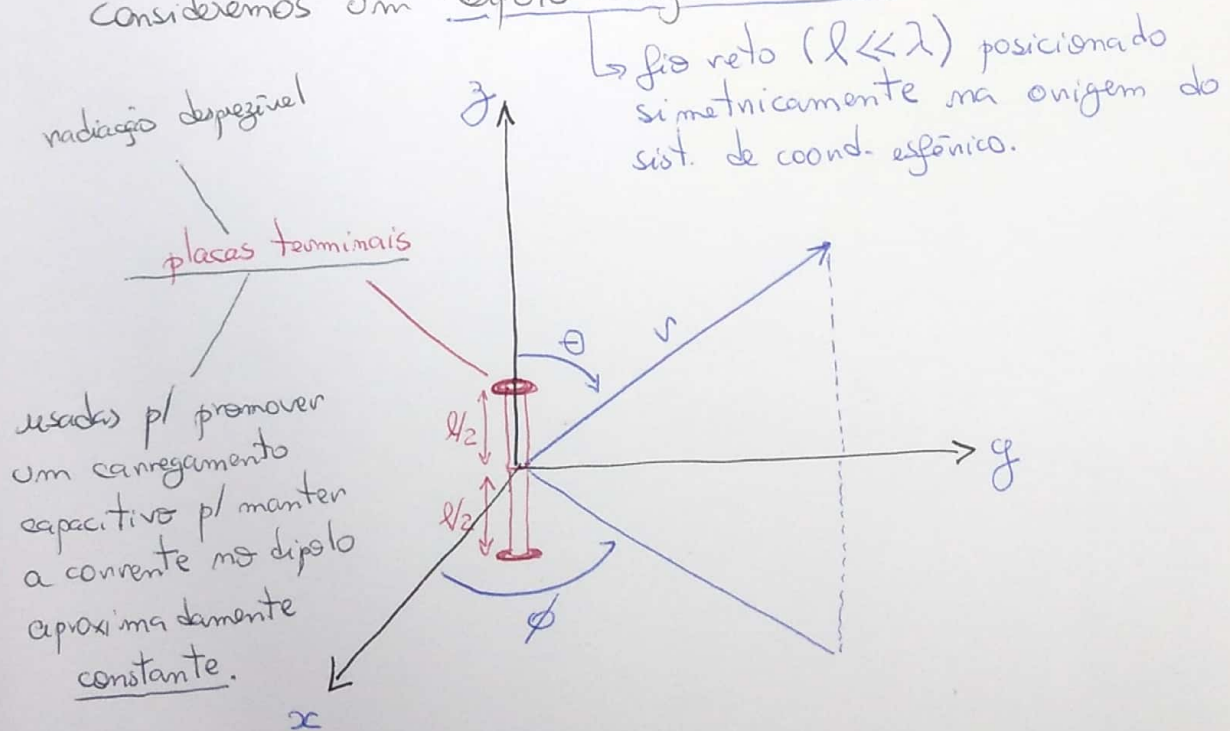 Consideremos um
↳ fio reto (l << λ) posicionado
simetricamente na origem do
sist. de coord. esférico.
radiação desprezível
placas terminais
usadas p/ promover
um carregamento
capacitivo p/ manter
a corrente no dipolo
aproximadamente
constante.
z
θ
r
l/2
l/2
y
ϕ
x